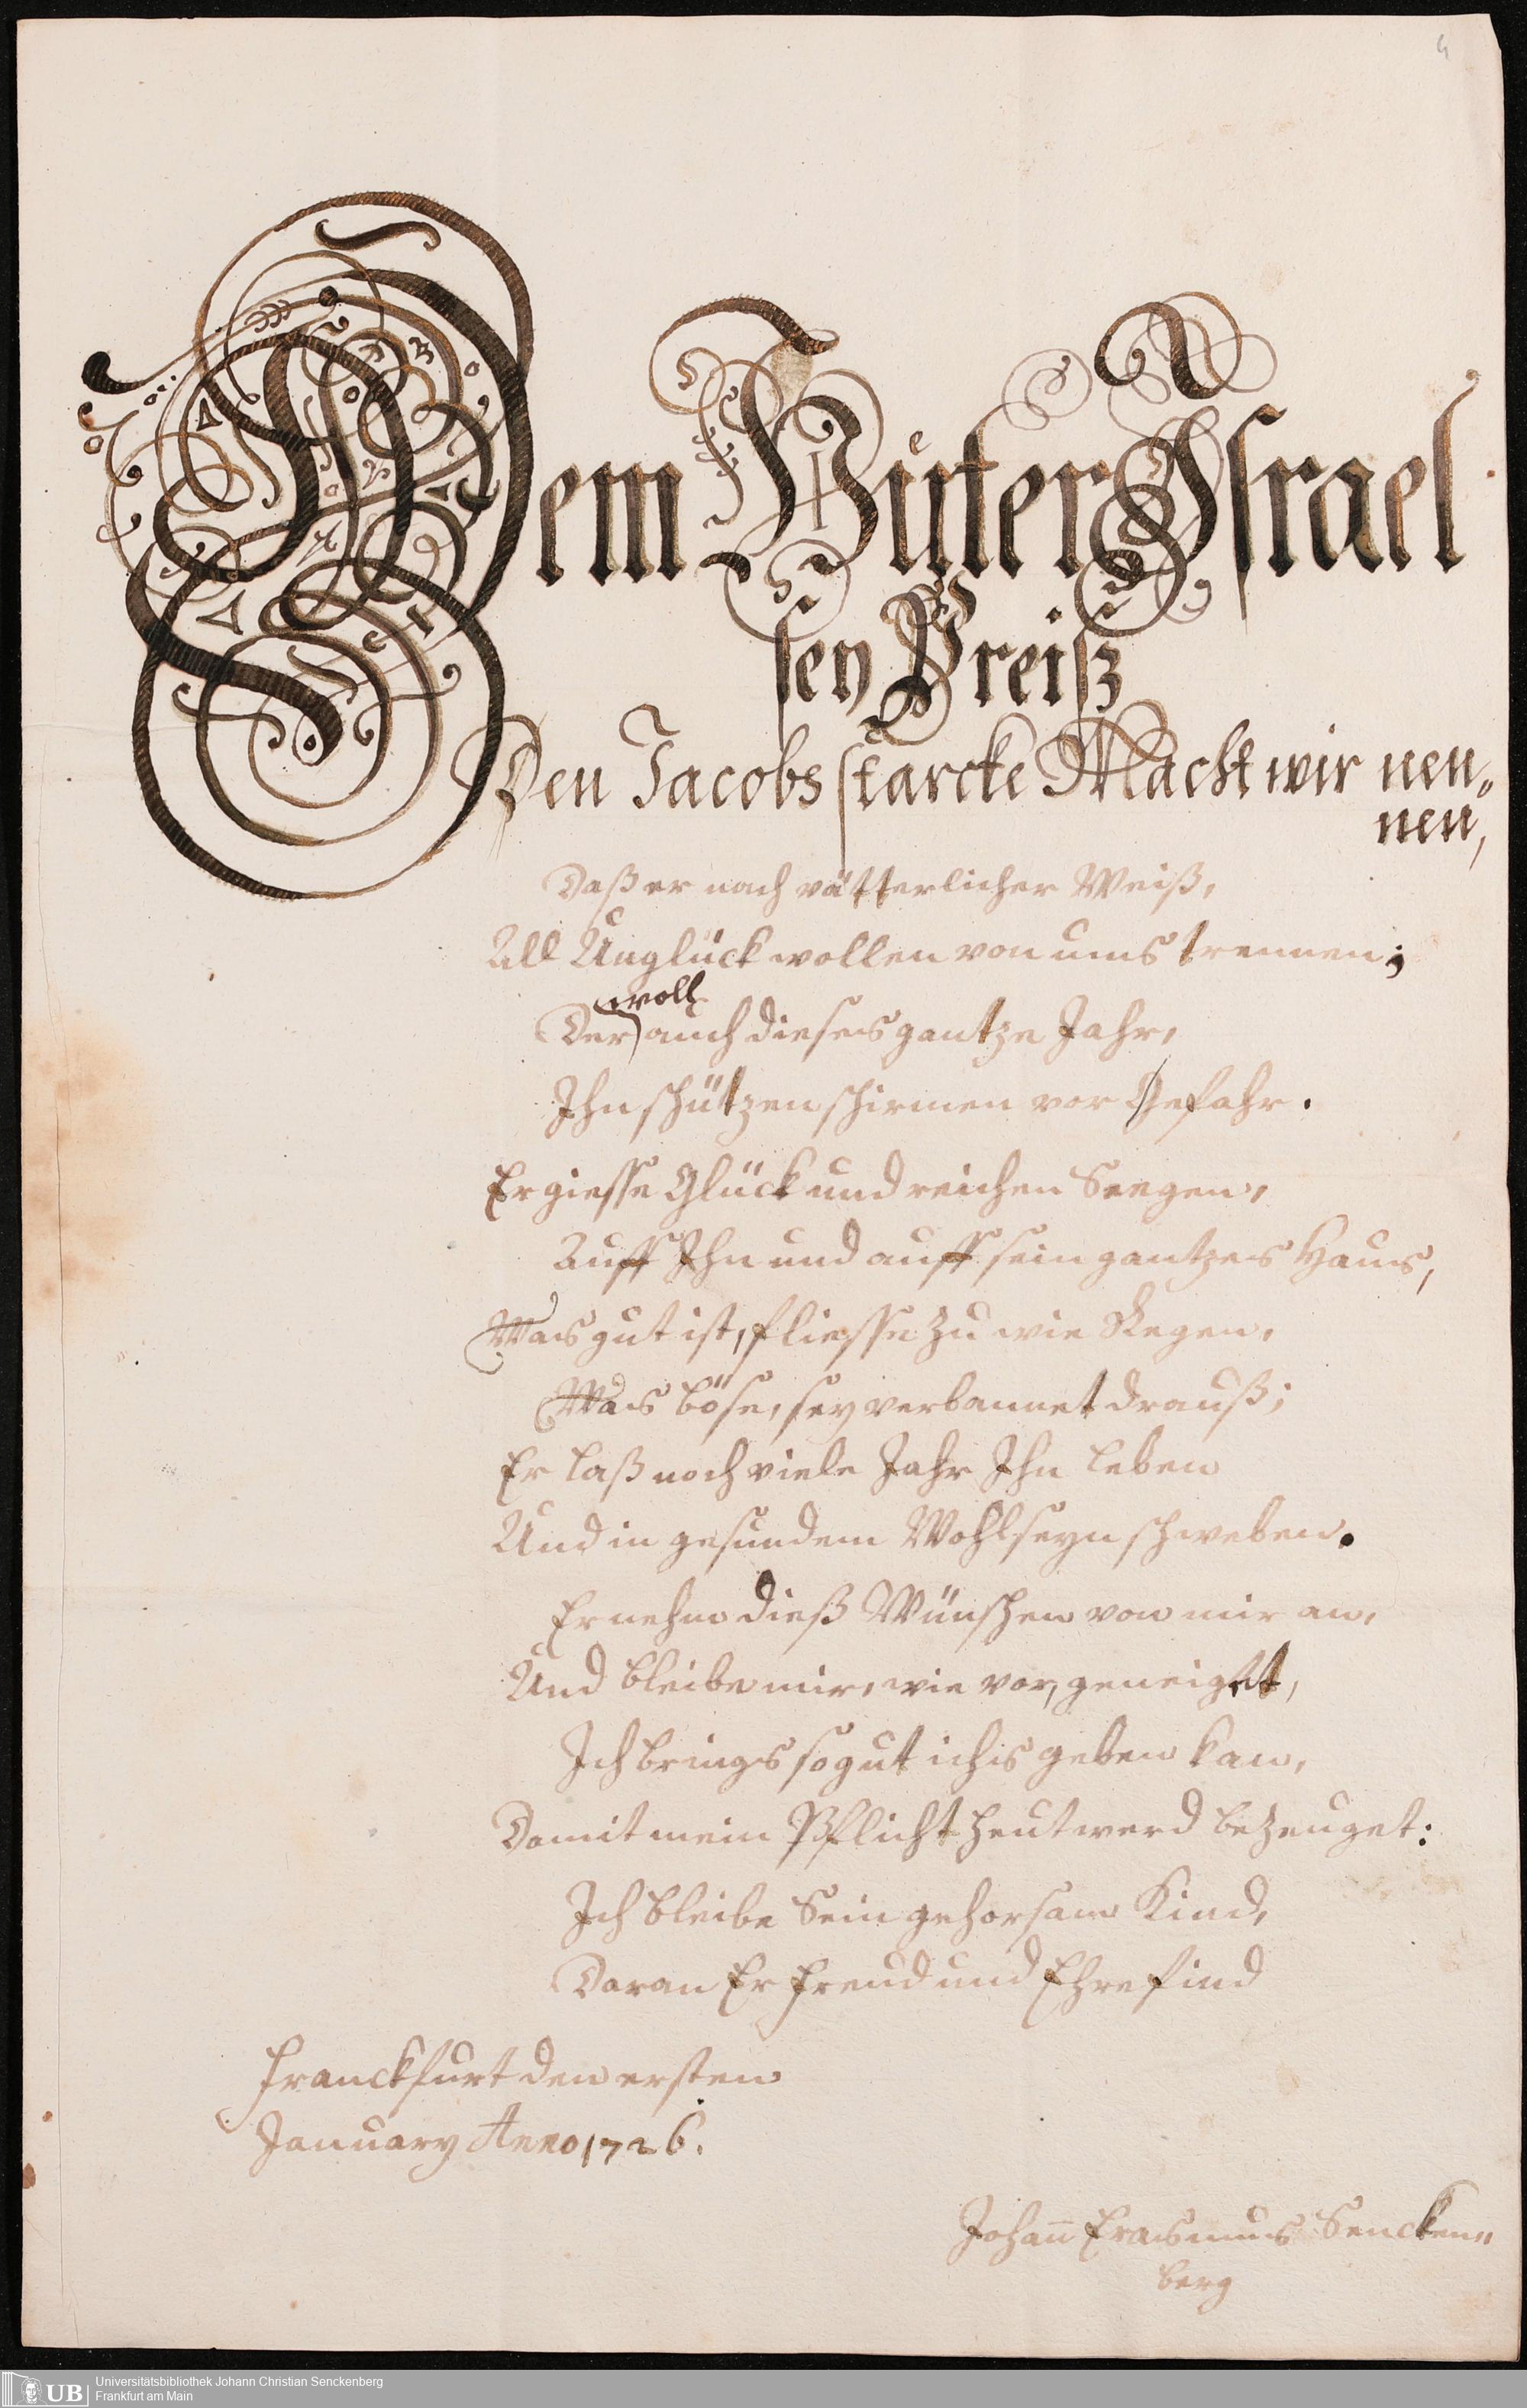 4
Dem Hüter Israel
sey Preiß
Den Jacobs starcke Macht wir nen„
nen,
Daß er nach vätterlicher Weiß,
All Unglück wollen von uns trennen;
woll
Der auch dieses gantze Jahr,
Ihn schützen schirmen vor Gefahr.
Er giesse Glück und reichen Seegen,
Auff Ihn und auff sein gantzes Haus,
Was gut ist, fliesse zu wie Regen,
Was böse, sey verbannet drauß;
Er laß noch viele Jahr Ihn leben
Und in gesundem Wohlseyn schweben.
Er nehm dieß Wünschen von mir an,
Und bleibe mir, wie vor, geneiget,
Ich brings so gut ichs geben kan,
Damit mein Pflicht heut werd bezeuget:
Ich bleibe Sein gehorsam Kind,
Daran Er Freud und Ehre find
Franckfurt den ersten
January Anno 1726.
Johan̄ Erasmus Sencken„
berg
UB
Universitätsbibliothek Johann Christian Senckenberg
Frankfurt am Main